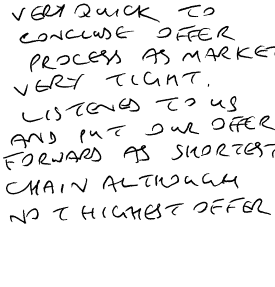 VERY QUICK TO
CONCLUDE OFFER
PROCESS AS MARKET
VERY TIGHT.
LISTENED TO US
AND PUT OUR OFFER
FORWARD AS SHORTEST
CHAIN ALTHOUGH
NOT HIGHEST OFFER